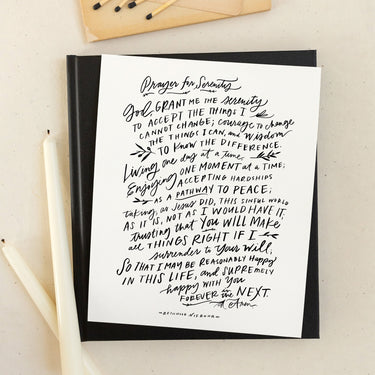 Prayer for Serenity
God, GRANT ME THE serenity
TO ACCEPT THE THINGS I
CANNOT CHANGE; courage to change
THE THINGS I CAN, and WISDOM
TO KNOW THE DIFFERENCE.
Living one day at a time,
Enjoying ONE MOMENT at a TIME;
ACCEPTING HARDSHIPS
AS A PATHWAY TO PEACE;
taking, as JESUS DID, THIS SINFUL WORLD
AS IT IS, NOT AS I WOULD HAVE IT,
trusting that YOU WILL MAKE
all THINGS RIGHT IF I
surrender to Your Will,
SO THAT I MAY BE REASONABLY HAPPY
IN THIS LIFE, and SUPREMELY
happy with You
FOREVER in the NEXT.
Amen
-REINHOLD NIEBUHR-